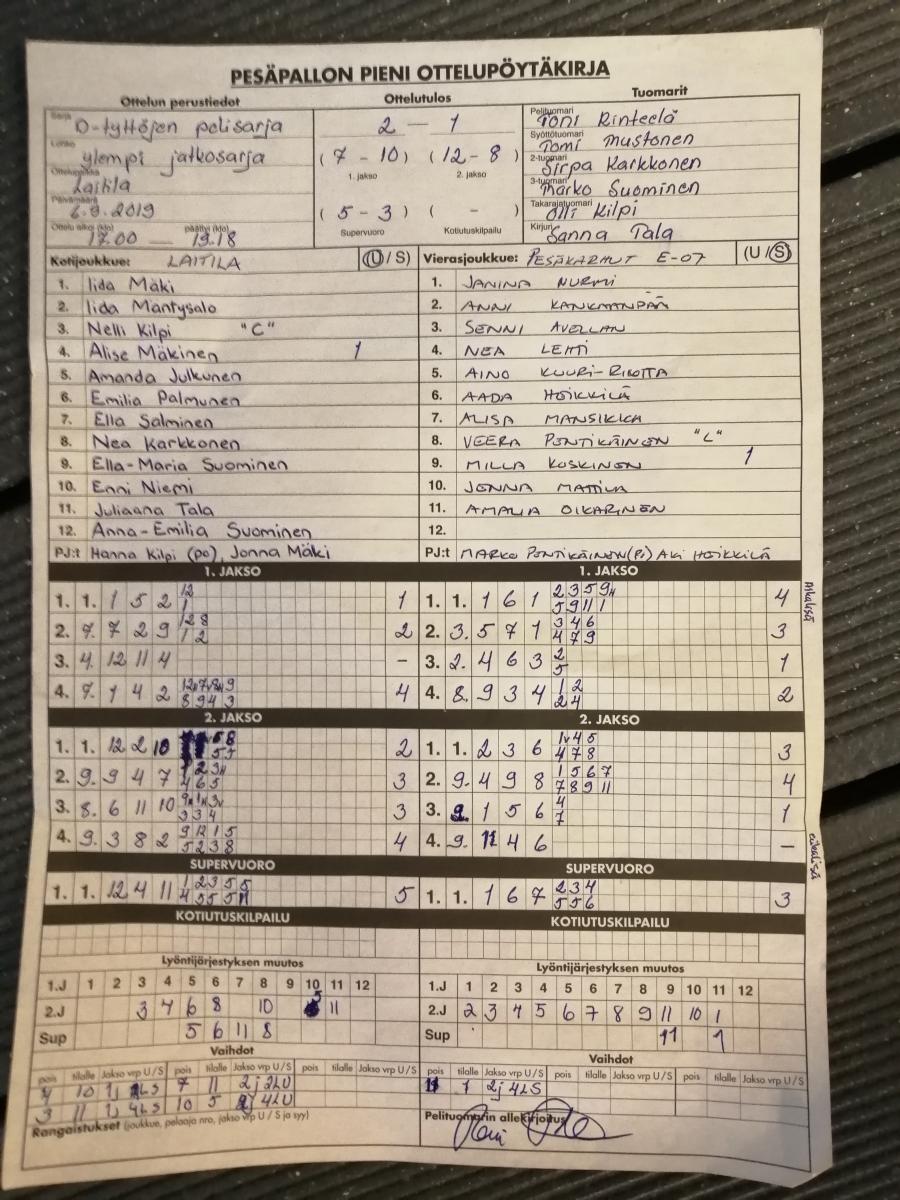 PESÄPALLON PIENI OTTELUPÖYTÄKIRJA
Ottelun perustiedot Ottelutulos Tuomarit
Sarja D-tyttöjen polisarja
Lohko ylempi jatkosarja
Ottelupaikka Laitila
Päivämäärä 6.9.2019
Ottelu alkoi (klo) 17.00 — päättyi (klo) 19.18
2 — 1
(7 - 10) (12 - 8)
1. jakso 2. jakso
(5 - 3) ( - )
Supervuoro Kotiutuskilpailu
Pelituomari Toni Rinteelä
Syöttötuomari Tomi Mustonen
2-tuomari Sirpa Karkkonen
3-tuomari Marko Suominen
Takarajatuomari Olli Kilpi
Kirjuri Sanna Tala
Kotijoukkue: LAITILA (U / S)
1. Iida Mäki
2. Iida Mäntysalo
3. Nelli Kilpi "C"
4. Alise Mäkinen 1
5. Amanda Julkunen
6. Emilia Palmunen
7. Ella Salminen
8. Nea Karkkonen
9. Ella-Maria Suominen
10. Enni Niemi
11. Juliaana Tala
12. Anna-Emilia Suominen
PJ:t Hanna Kilpi (po), Jonna Mäki
Vierasjoukkue: PESÄKARHUT E-07 (U / S)
1. JANINA NURMI
2. ANNI KANKAANPÄÄ
3. SENNI AVELLAN
4. NEA LEHTI
5. AINO KUURI-RIUTTA
6. AADA HOIKKILÄ
7. ALISA MANSIKKA
8. VEERA PONTIKÄINEN "C"
9. MILLA KOSKINEN 1
10. JENNA MATTILA
11. AMALIA OIKARINEN
12.
PJ:t MARKO PONTIKÄINEN (PJ) AKI HOIKKILÄ
1. JAKSO
1. 1. 1 5 2 12 1
1
2. 7. 7 2 9 1 2 8 2
1 2
3. 4. 12 11 4 –
4. 7. 1 4 2 4
8 9 4 3
1. JAKSO
1. 1. 1 6 1 2 3 5 9 4
5 9 11 1
2. 3. 5 7 1 3 4 6 3
4 7 9
3. 2. 4 6 3 2 1
5
4. 8. 9 3 4 1 2 2
2 4
2. JAKSO
1. 1. 12 2 10 5 8 2
2. 9. 9 4 7 1 2 3 3
4 6 5
3. 8. 6 11 10 3
3 3 4
4. 9. 3 8 2 9 12 1 5 4
5 2 3 8
2. JAKSO
1. 1. 2 3 6 1 4 5 3
4 7 8
2. 9. 4 9 8 1 5 6 7 4
7 8 9 11
3. 9. 1 5 6 4 1
7
4. 9. 11 4 6 –
SUPERVUORO
1. 1. 12 4 11 1 2 3 5 5 5
4 5 5 5 11
SUPERVUORO
1. 1. 1 6 7 2 3 4 3
5 5 6
KOTIUTUSKILPAILU
KOTIUTUSKILPAILU
Lyöntijärjestyksen muutos
1.J 1 2 3 4 5 6 7 8 9 10 11 12
2.J 3 4 6 8 10 5 11
Sup 5 6 11 8
Lyöntijärjestyksen muutos
1.J 1 2 3 4 5 6 7 8 9 10 11 12
2.J 2 3 4 5 6 7 8 9 11 10 1
Sup 11 1
Vaihdot
pois tilalle Jakso vrp U/S pois tilalle Jakso vrp U/S pois tilalle Jakso vrp U/S
4 10 1j 2LS 7 11 2j 2LU
3 11 1j 4LS 10 5 2j 4LU
Rangaistukset (joukkue, pelaaja nro, jakso vrp U / S ja syy)
Vaihdot
pois tilalle Jakso vrp U/S pois tilalle Jakso vrp U/S pois tilalle Jakso vrp U/S
11 1 2j 4LS
Pelituomarin allekirjoitus